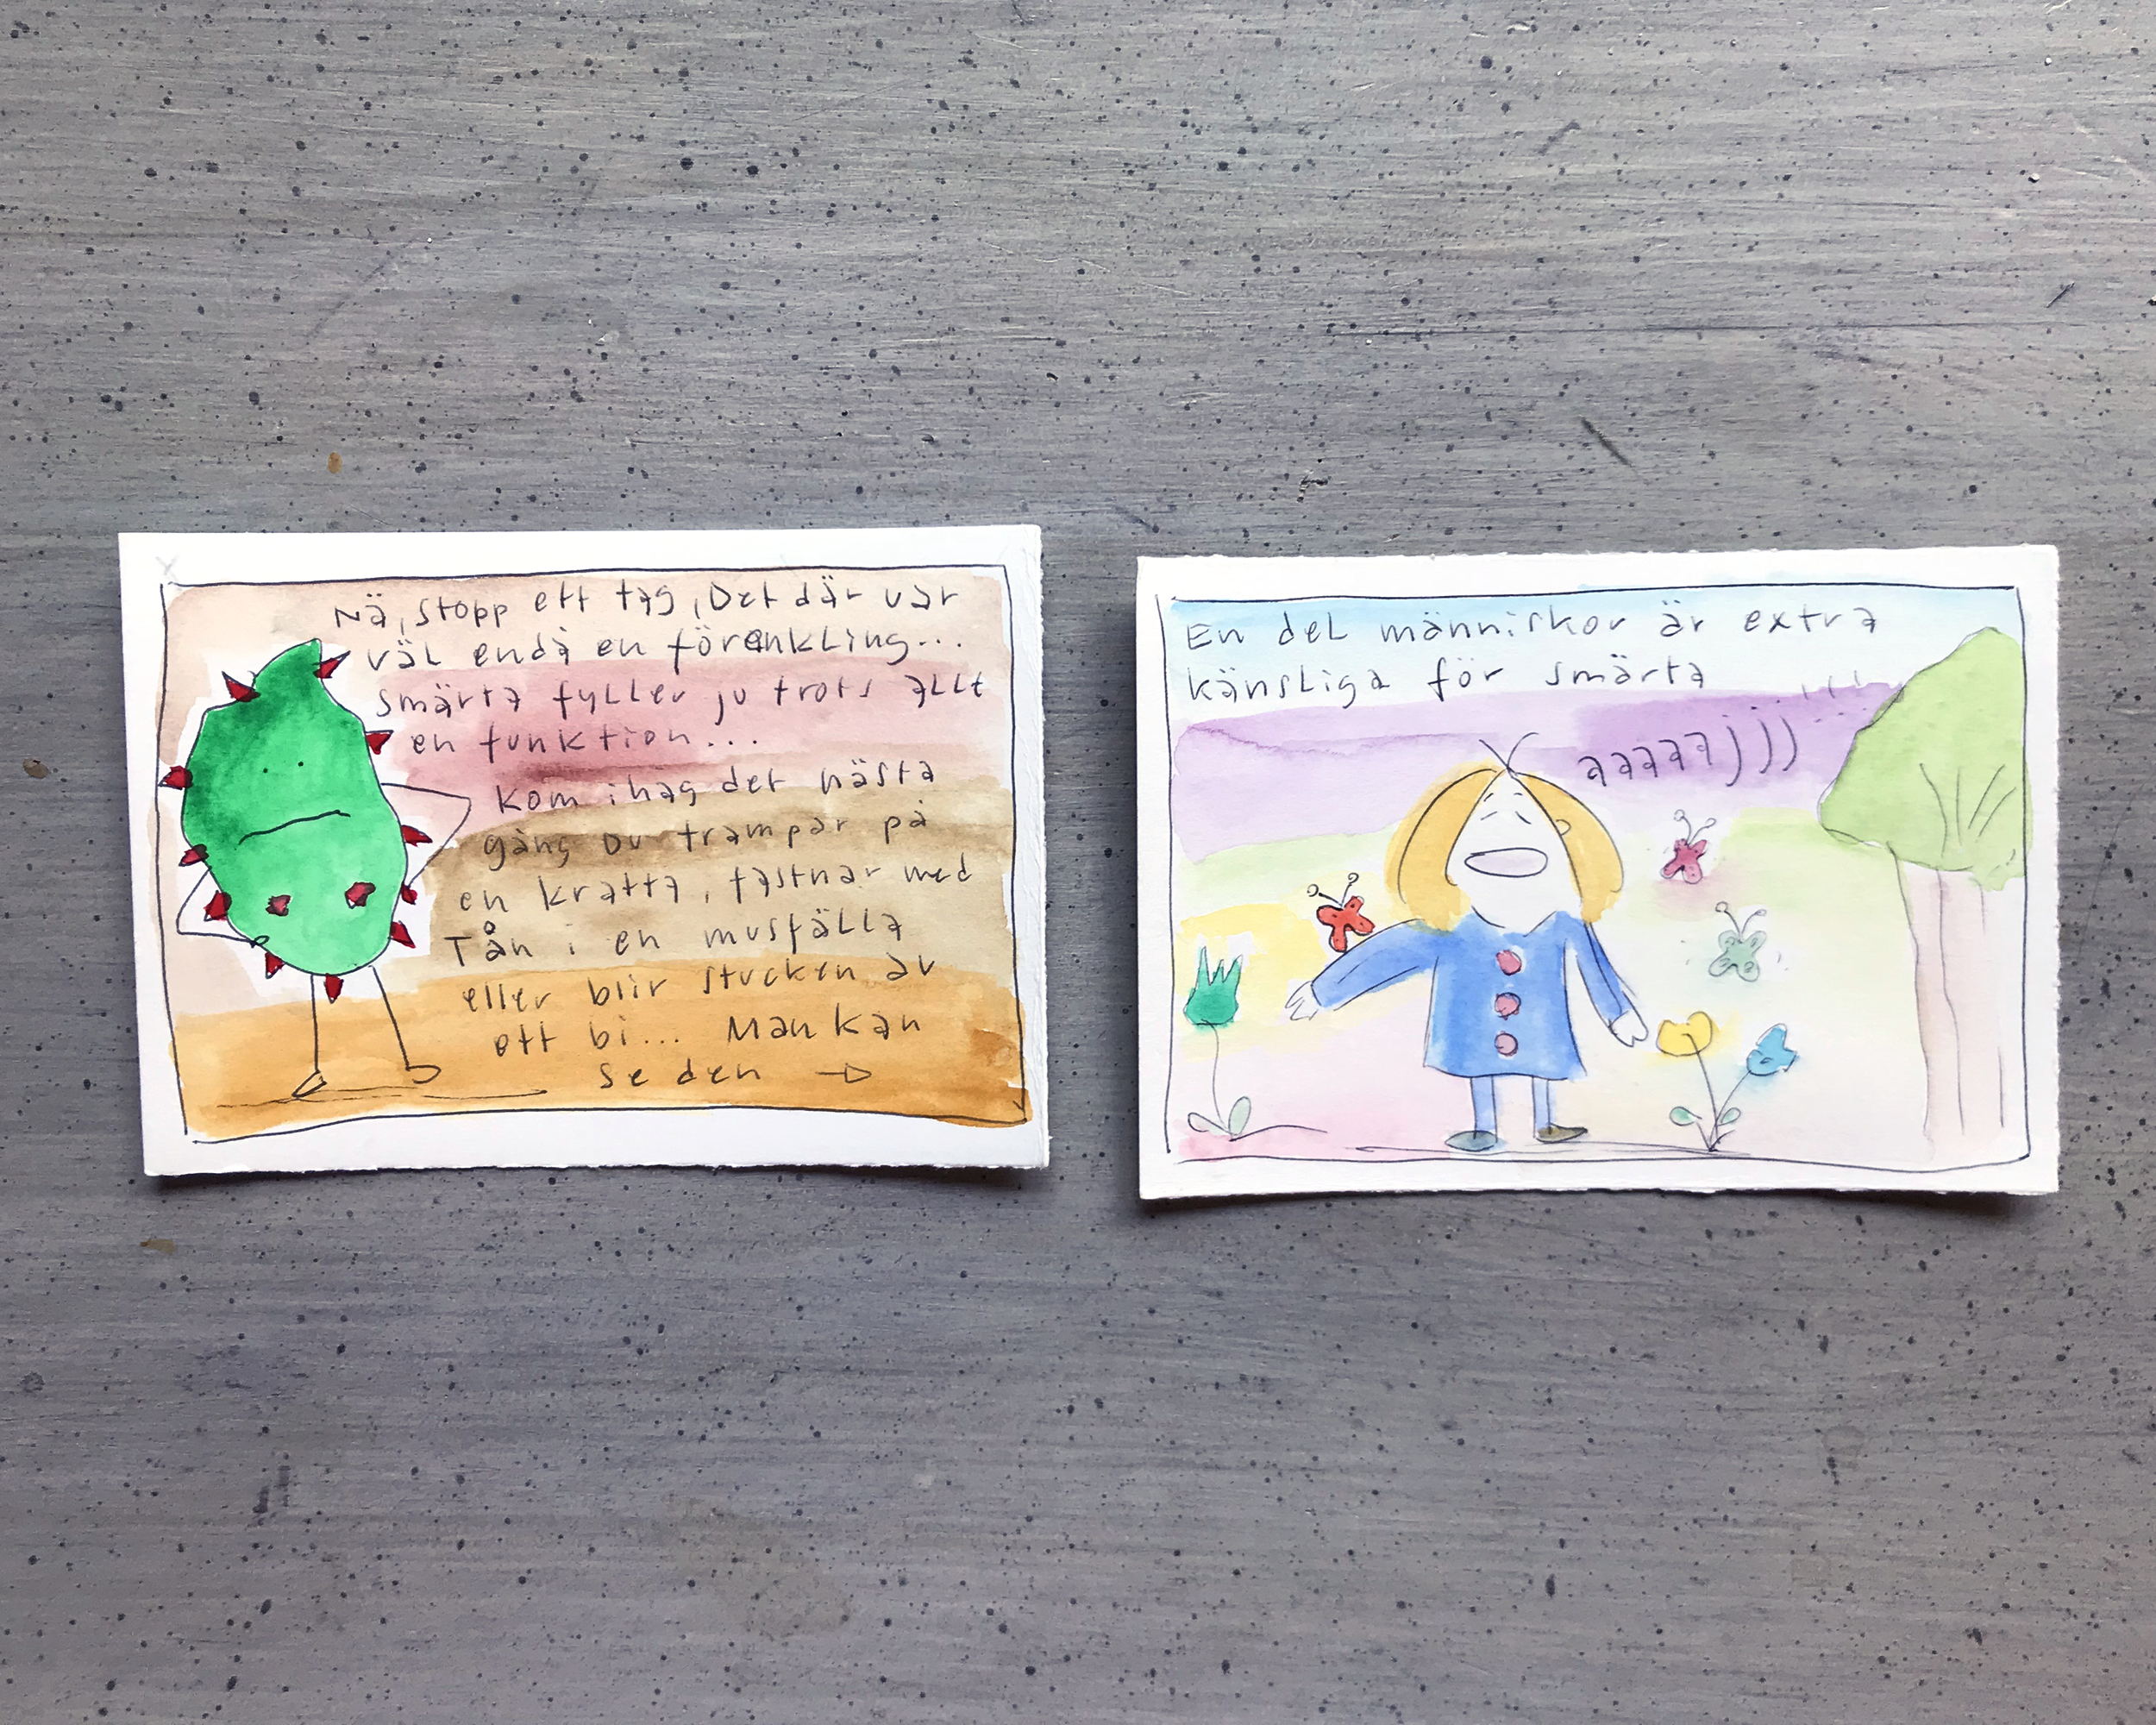 Nä, stopp ett tag, Det där var
väl endå en förenkling...
smärta fyller ju trots allt
en funktion...
kom ihag det nästa
gång Du trampar på
en kratta, fastnar med
Tån i en musfälla
eller blir stucken av
ett bi... Man kan
se den
En del människor är extra
känsliga för smärta
aaaaajjj